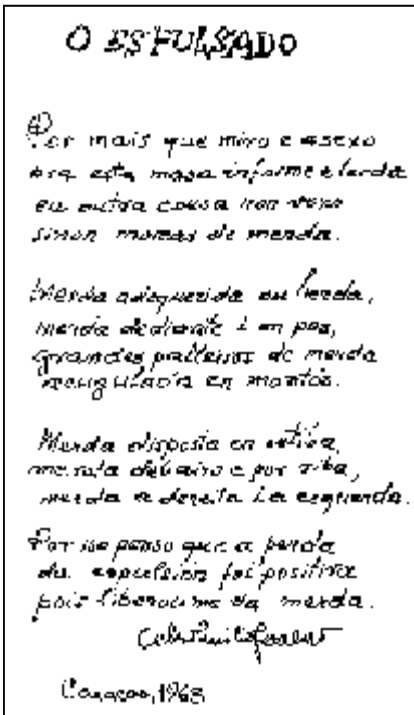 O ESPULSADO
Por mais que miro e asexo
pra esta masa informe e lerda
eu outra cousa non vexo
sinon moreas de merda.
Merda adequerida ou herda,
merda diediante i en pos,
grandes palleiros de merda
en montós.
Merda disposta en estiba,
merda debaixo e por riba,
merda a dereita i a esquerda.
Por iso penso que a perda
da expulsión foi positiva
pois liberoume da merda.
Celso Emilio Ferreiro
Caracas, 1968